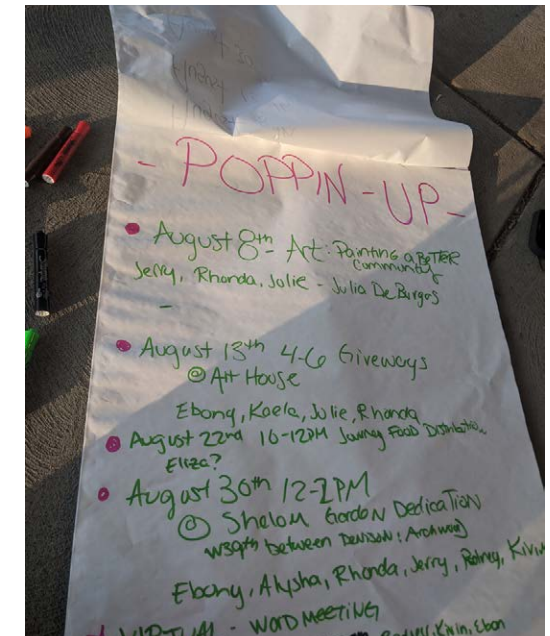 - POPPIN-UP-
August 8th - Art: Painting a BETTER
Community
Jerry, Rhonda, Jolie - Julia De Burgos
-
August 13th 4-6 Giveways
@ Art House
Ebony, Kaela, Julie, Rhonda
August 22nd 10-12PM Journey Food Distribution
Eliza?
August 30th 12-2PM
@ Shalom Garden Dedication
between Denison: Archwood
Ebony, Alysha, Rhonda, Jerry, Rodney,
VIRTUAL - WORD MEETING